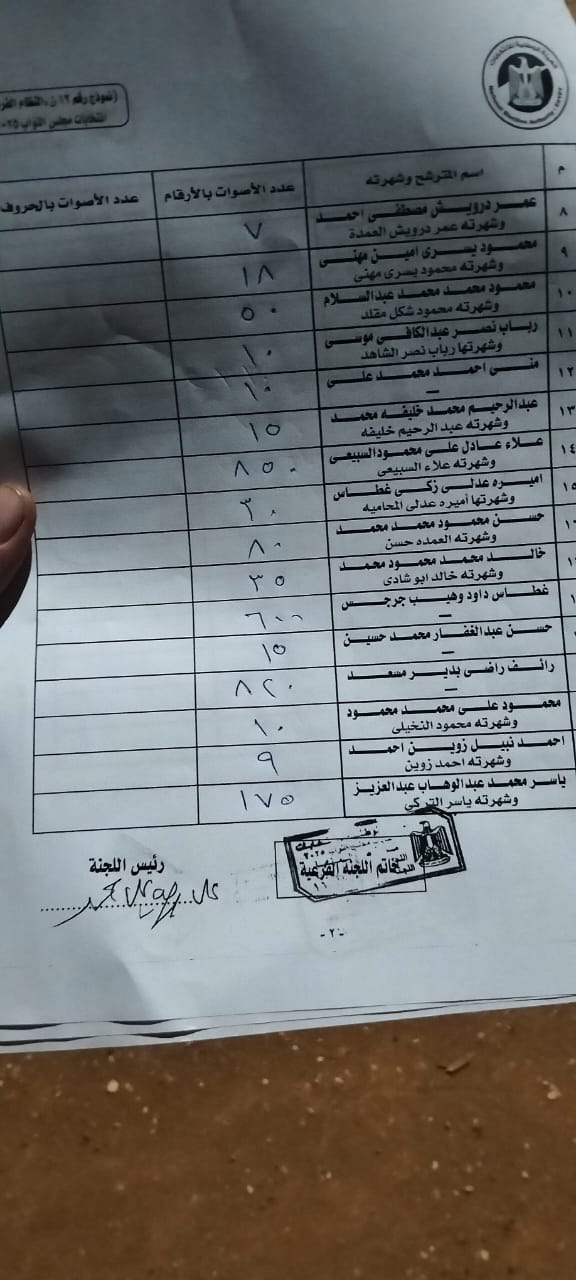 الهيئة الوطنية للانتخابات
National Election Authority - EGYPT
(نموذج رقم ١٢ ن. النظام الفر
انتخابات مجلس النواب ٢٠٢٥
م اسم المترشح وشهرته عدد الأصوات بالأرقام عدد الأصوات بالحروف
٨ عمر درويش مصطفى احمد ٧
وشهرته عمر درويش العمدة
٩ محمود يسرى امين مهنى ١٨
وشهرته محمود يسرى مهنى
١٠ محمود محمد محمد عبدالسلام ٥٠
وشهرته محمود شكل مقلد
١١ رباب نصر عبدالكافي موسى ١٠
وشهرتها رباب نصر الشاهد
١٢ منى احمد محمد على ١٠
—
١٣ عبدالرحيم محمد خليفه محمد ١٥
وشهرته عبد الرحيم خليفه
١٤ علاء عادل على محمود السبيعى ٨٥٠
وشهرته علاء السبيعى
١٥ اميره عدلى زكى غطاس ٣٠
وشهرتها أميره عدلى المحاميه
حسن محمود محمد محمد ٨٠
وشهرته العمده حسن
خالد محمد محمود محمد ٣٥
وشهرته خالد ابو شادى
غطاس داود وهيب جرجس ٦٠٠
—
حسن عبدالغفار محمد حسين ١٥
—
رائف راضى بدير مسعد ٨٢٠
—
محمود على محمد محمود ١٠
وشهرته محمود النخيلى
احمد نبيل زوين احمد ٩
وشهرته احمد زوين
ياسر محمد عبدالوهاب عبدالعزيز ١٧٥
وشهرته ياسر التركي
رئيس اللجنة
خاتم اللجنه الفرعية
-٢-